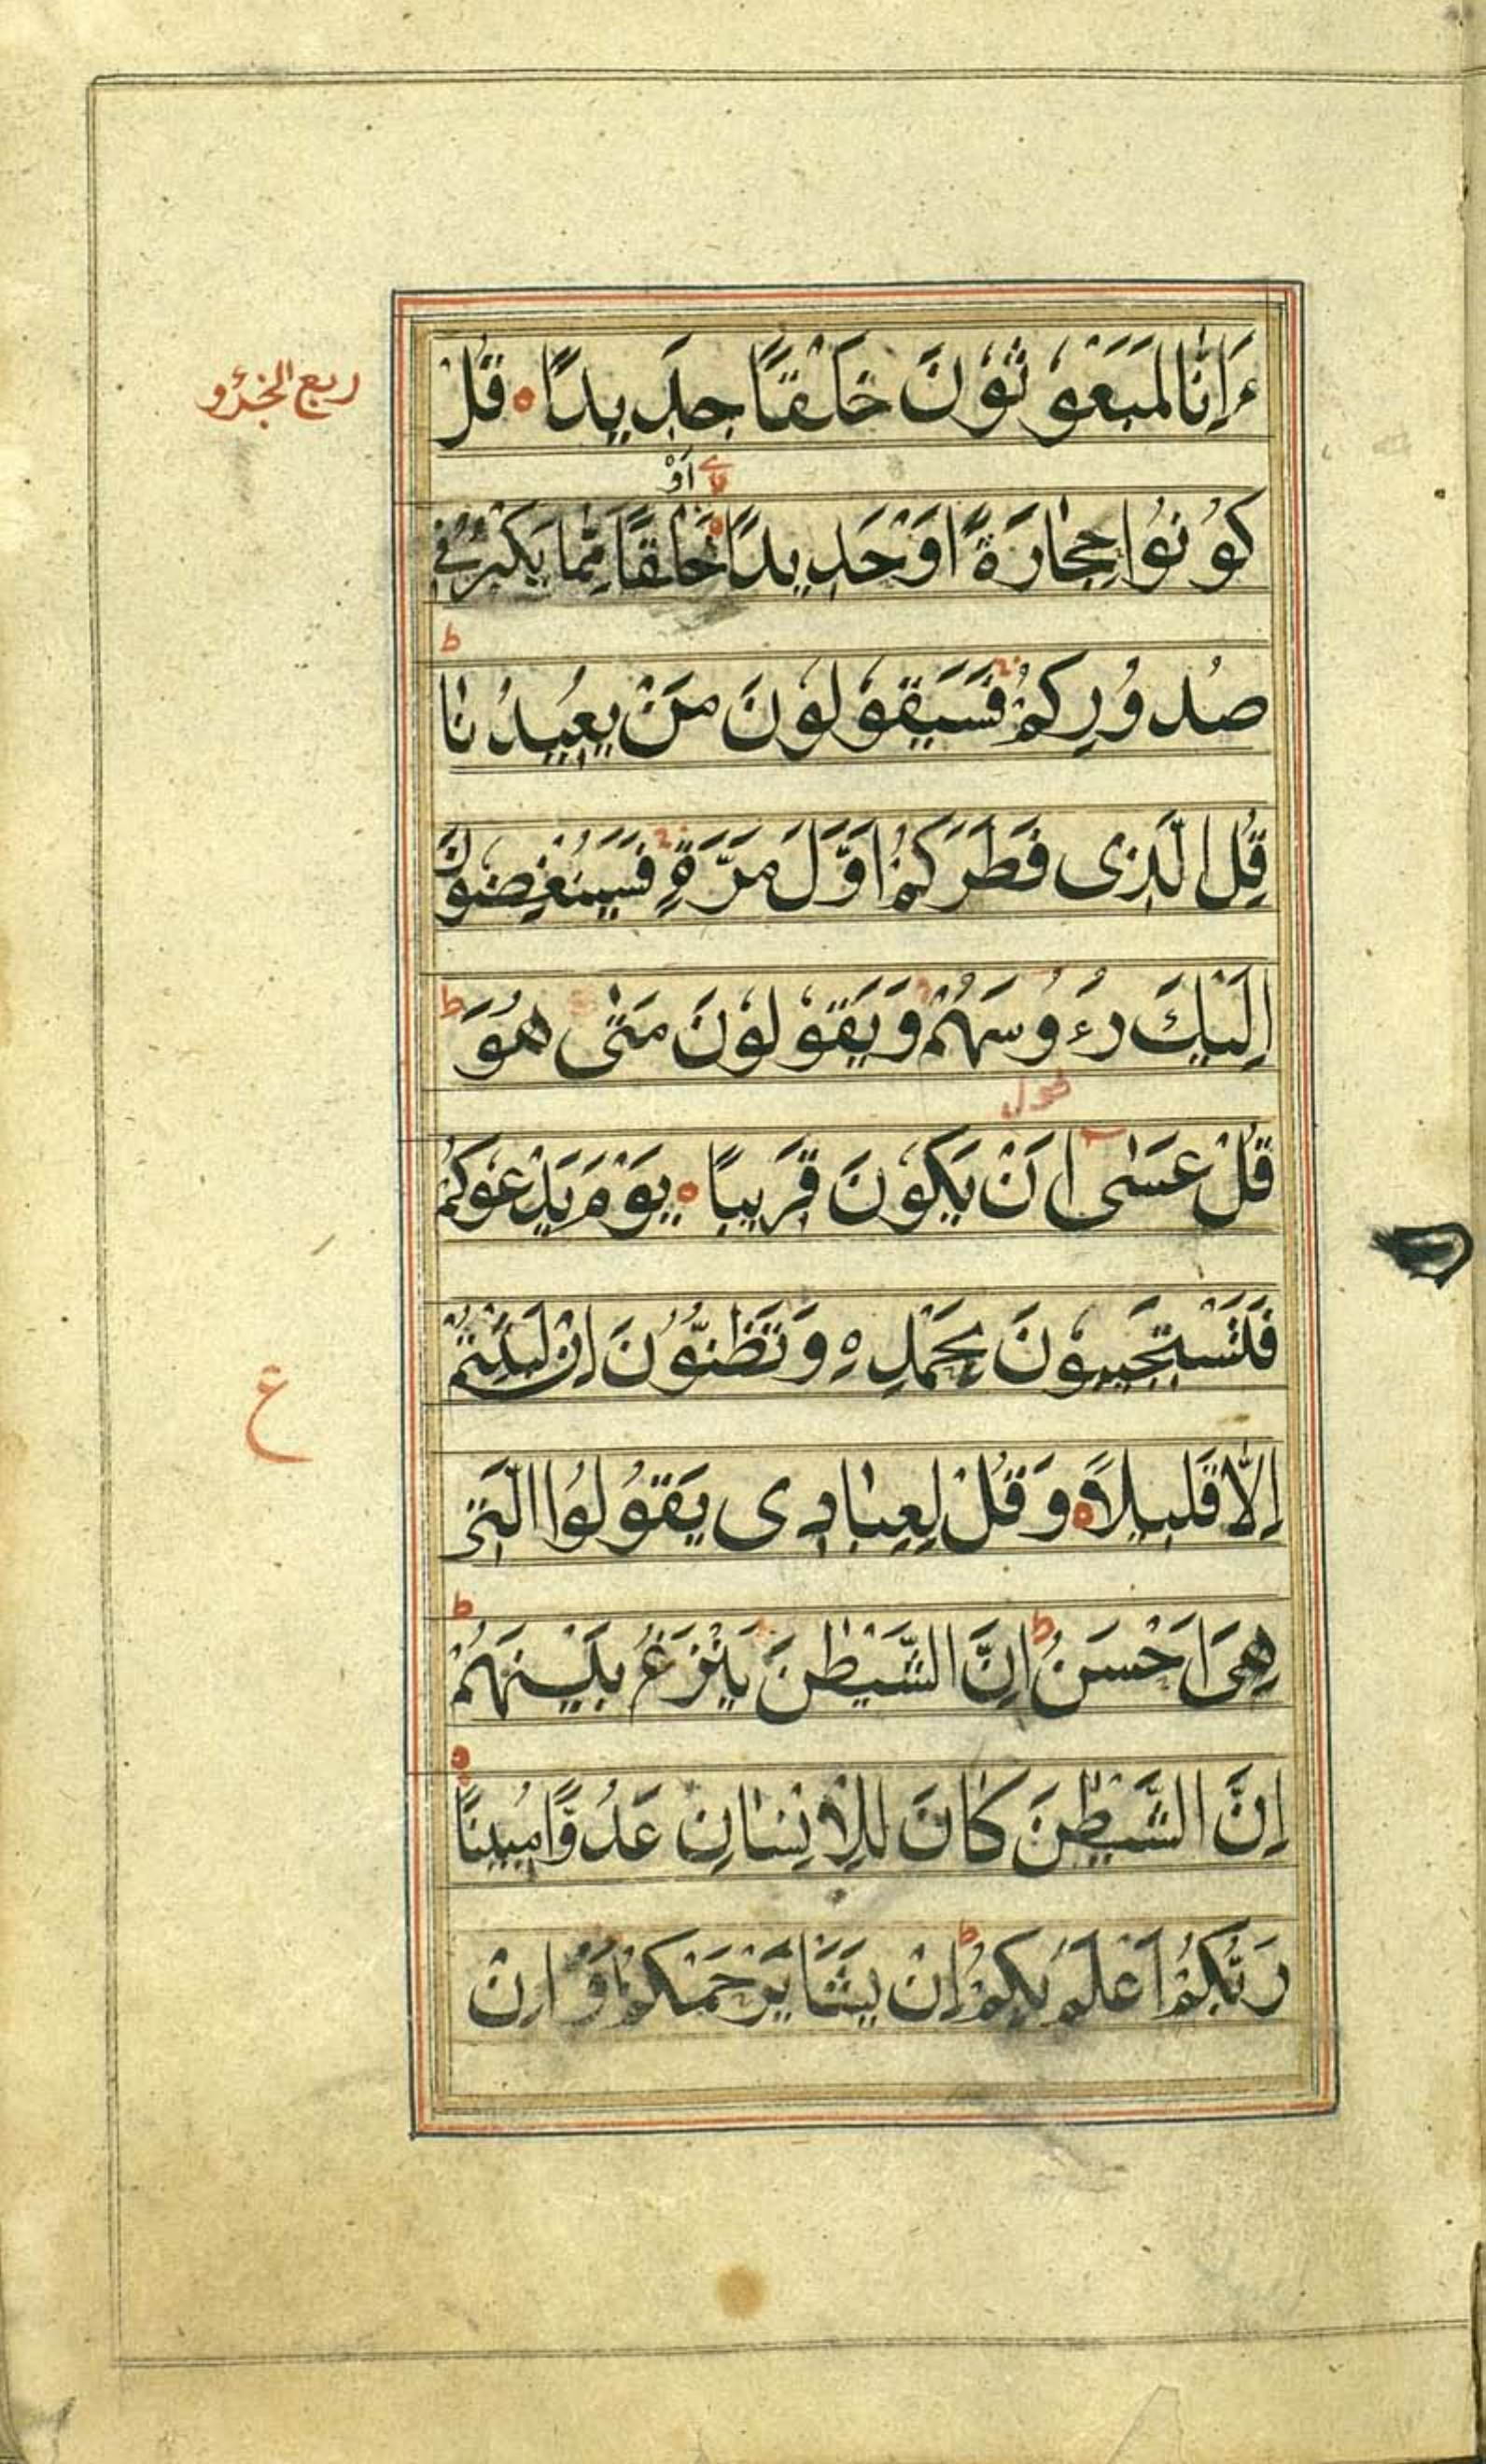 ءَاِنَّا لَمَبْعُوْثُوْنَ خَلْقًا جَدِيدًا ۝ قُلْ
ربع الجزو
اَوْ
كُوْنُوْا حِجَارَةً اَوْ حَدِيدًا خَلْقًا مِمَّا يَكْبُرُ فِي
ط
صُدُوْرِكُمْ فَسَيَقُوْلُوْنَ مَنْ يُعِيْدُنَا
قُلِ الَّذِى فَطَرَكُمْ اَوَّلَ مَرَّةٍ فَسَيُنْغِضُوْنَ
اِلَيْكَ رُءُوْسَهُمْ وَيَقُوْلُوْنَ مَتٰى هُوَ ط
قُلْ عَسٰى اَنْ يَكُوْنَ قَرِيبًا ۝ يَوْمَ يَدْعُوْكُمْ
فَتَسْتَجِيبُوْنَ بِحَمْدِهِ وَتَظُنُّوْنَ اِنْ لَبِثْتُمْ
ع
اِلَّا قَلِيلًا ۝ وَقُلْ لِعِبَادِى يَقُوْلُوا الَّتِى
هِىَ اَحْسَنُ ط اِنَّ الشَّيْطٰنَ يَنْزَغُ بَيْنَهُمْ ط
اِنَّ الشَّيْطٰنَ كَانَ لِلْاِنْسَانِ عَدُوًّا مُبِينًا ۝
رَبُّكُمْ اَعْلَمُ بِكُمْ ط اِنْ يَشَا يَرْحَمْكُمْ اَوْ اِنْ